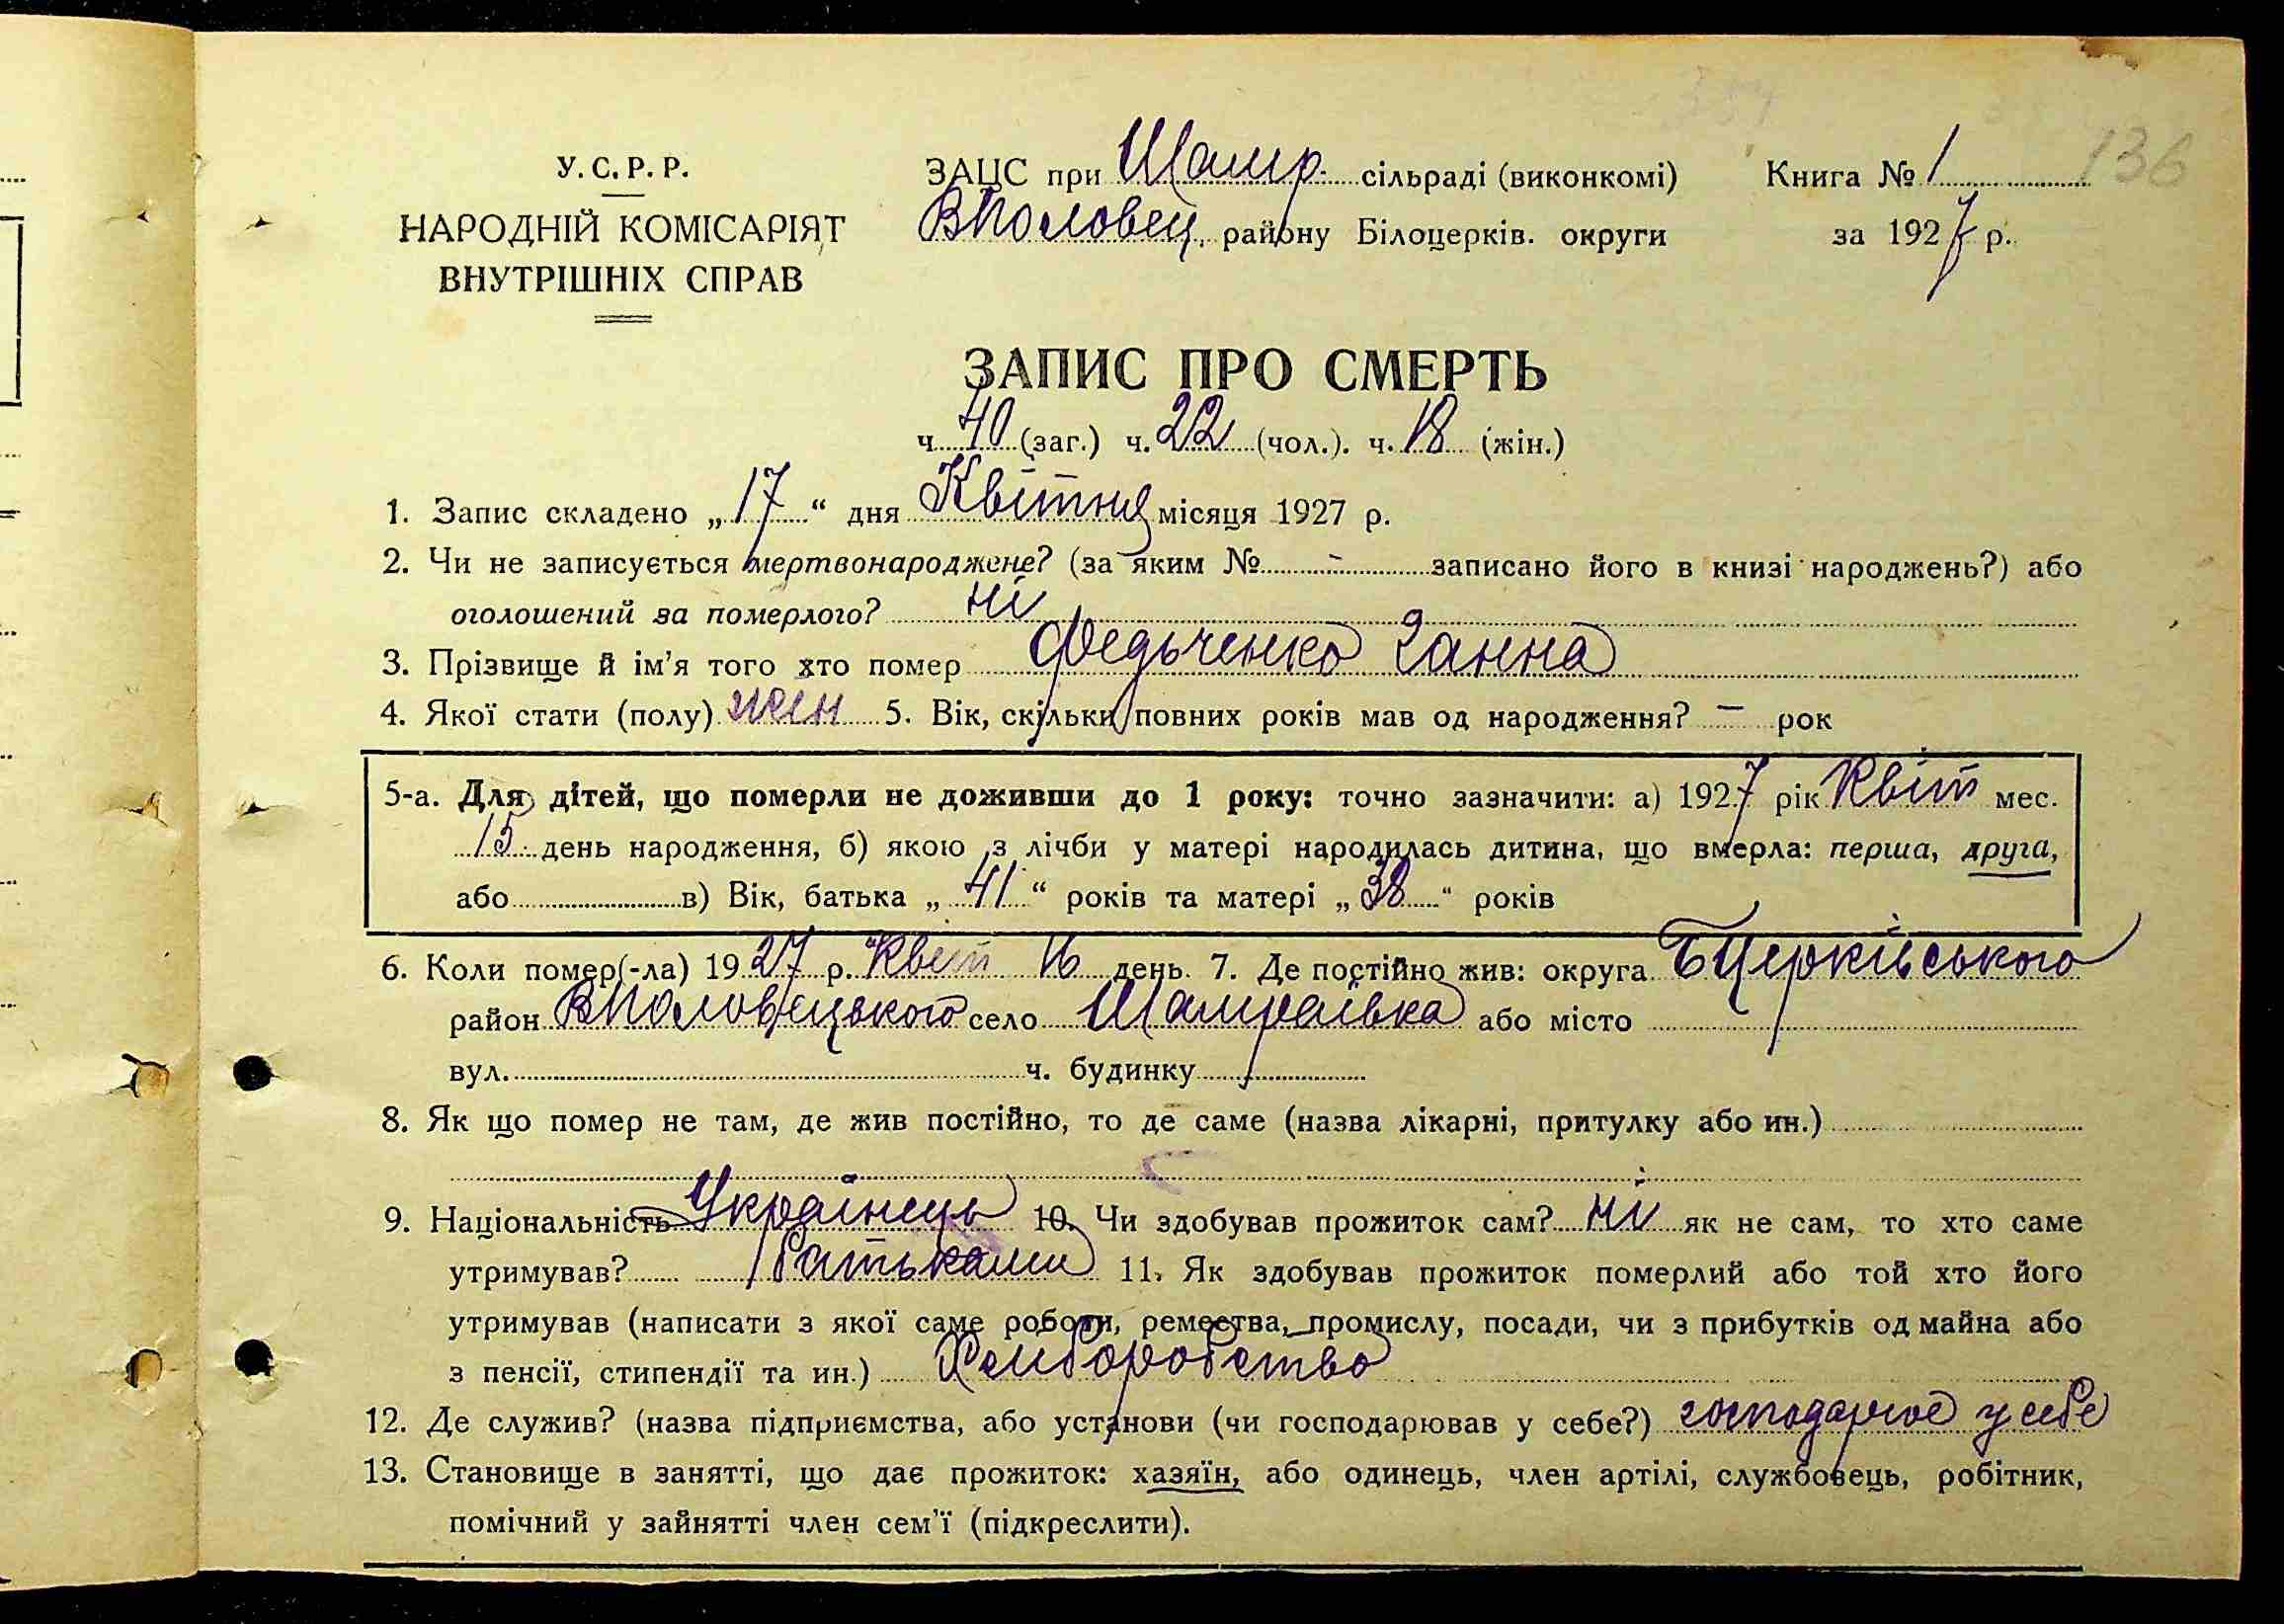 136
У.С.Р.Р.
НАРОДНІЙ КОМІСАРІЯТ
ВНУТРІШНІХ СПРАВ
ЗАЦС при Шамр. сільраді (виконкомі)
ВПоловец. району Білоцерків. округи
Книга № 1
за 1927 р.
ЗАПИС ПРО СМЕРТЬ
ч. 40 (заг.) ч. 22 (чол.). ч. 18 (жін.)
1. Запис складено „17“ дня Квітня місяця 1927 р.
2. Чи не записується мертвонароджене? (за яким № - записано його в книзі народжень?) або
оголошений за померлого? ні
3. Прізвище й ім’я того хто помер Федьченко Ганна
4. Якої стати (полу) жін 5. Вік, скільки повних років мав од народження? — рок
5-а. Для дітей, що померли не доживши до 1 року: точно зазначити: а) 1927 рік Квіт мес.
15 день народження, б) якою з лічби у матері народилась дитина, що вмерла: перша, друга,
або в) Вік, батька „41“ років та матері „38“ років
6. Коли помер(-ла) 1927 р. Квіт 16 день. 7. Де постійно жив: округа БЦерківського
район ВПоловецького село Шамраївка або місто
вул. ч. будинку
8. Як що помер не там, де жив постійно, то де саме (назва лікарні, притулку або ин.)
9. Національність Українець 10. Чи здобував прожиток сам? ні як не сам, то хто саме
утримував? батьками 11. Як здобував прожиток померлий або той хто його
утримував (написати з якої саме роботи, ремества, промислу, посади, чи з прибутків од майна або
з пенсії, стипендії та ин.) Хліборобство
12. Де служив? (назва підприємства, або установи (чи господарював у себе?) господарює у себе
13. Становище в занятті, що дає прожиток: хазяїн, або одинець, член артілі, службовець, робітник,
помічний у зайнятті член сем’ї (підкреслити).